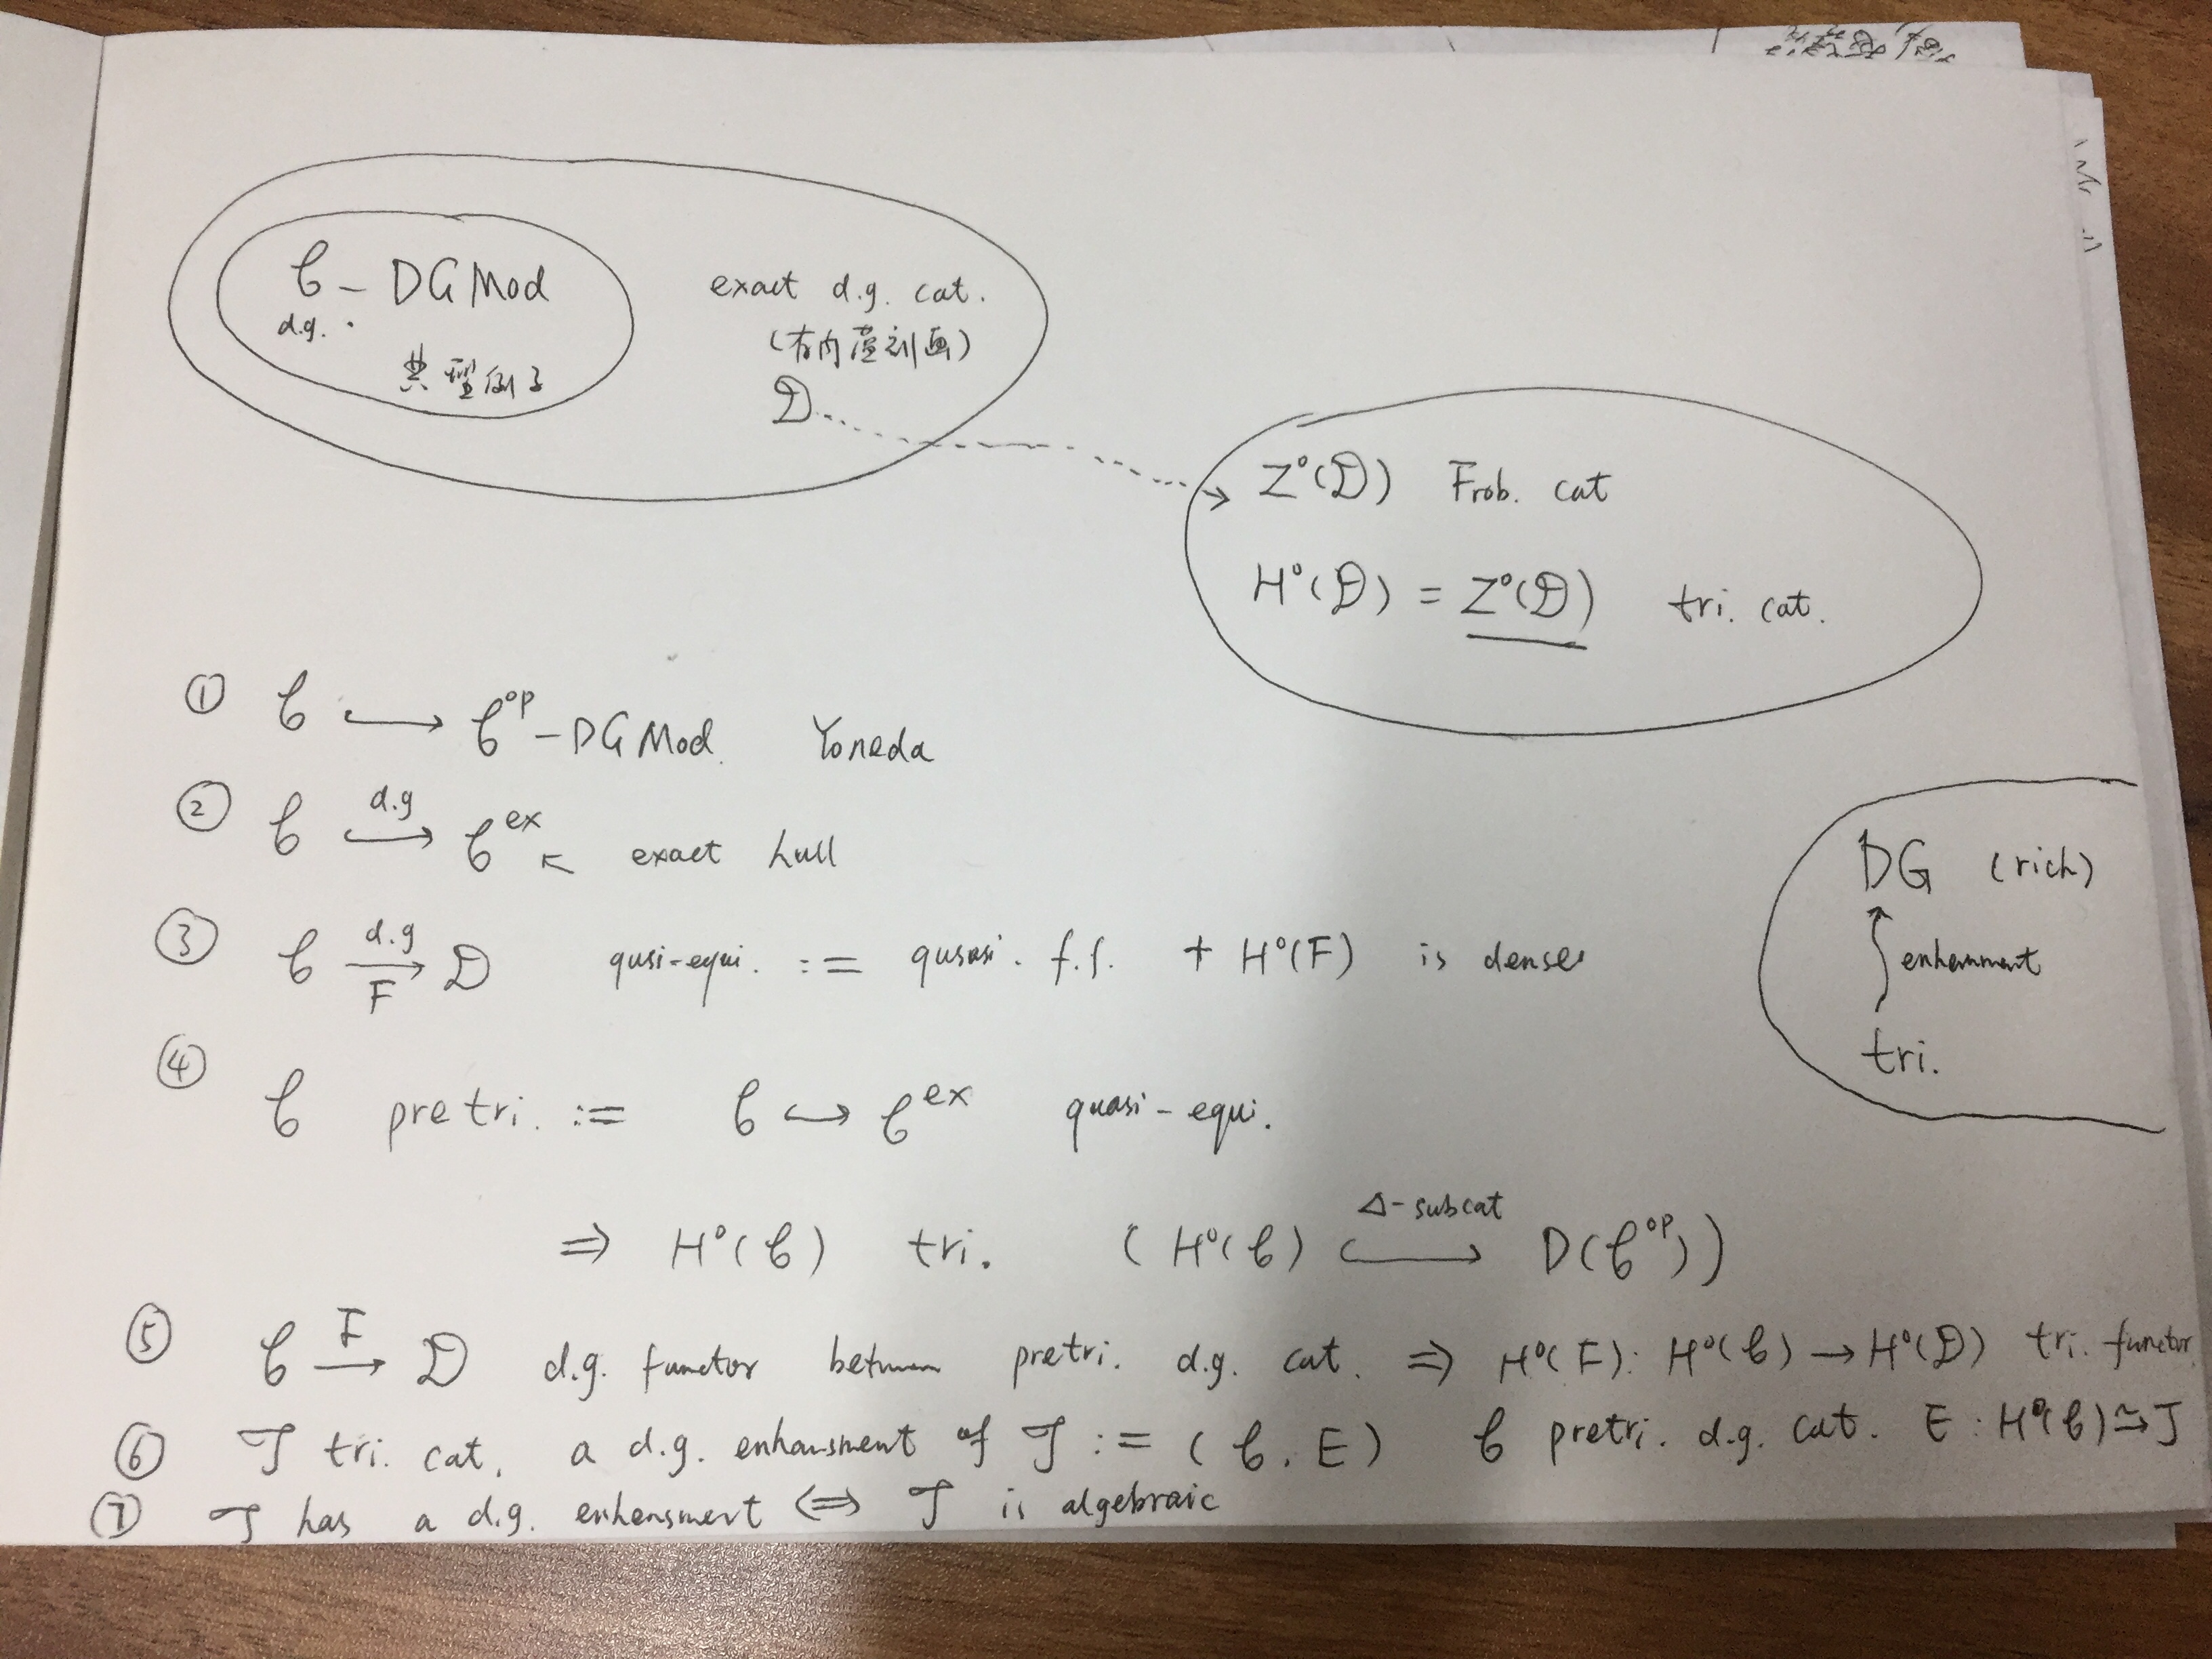 𝒞 – DG Mod
d.g.
典型例子
exact d.g. cat.
(有内蕴刻画)
𝒟
Z⁰(𝒟) Frob. cat
H⁰(𝒟) = Z⁰(𝒟) tri. cat.
① 𝒞 ↪ 𝒞ᵒᵖ – DG Mod. Yoneda
② 𝒞 d.g ↪ 𝒞ᵉˣ ↖ exact hull
③ 𝒞 d.g → F 𝒟 qusi-equi. := qusasi. f.f. + H⁰(F) is dense
④ 𝒞 pretri. := 𝒞 ↪ 𝒞ᵉˣ quasi-equi.
⇒ H⁰(𝒞) tri. ( H⁰(𝒞) Δ-subcat ↪ D(𝒞ᵒᵖ))
DG (rich)
enhernment
tri.
⑤ 𝒞 F → 𝒟 d.g. functor between pretri. d.g. cat. ⇒ H⁰(F): H⁰(𝒞) → H⁰(𝒟) tri. functor
⑥ 𝒯 tri. cat. a d.g. enhansment of 𝒯 := (𝒞. E) 𝒞 pretri. d.g. cat. E : H⁰(𝒞) ≃ 𝒯
⑦ 𝒯 has a d.g. enhensment ⇔ 𝒯 is algebraic